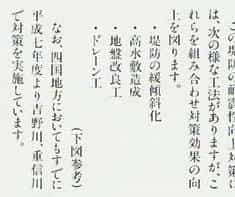 この堤防の耐震性向上対策に
は、次の様な工法がありますが、こ
れらを組み合わせ対策効果の向
上を図ります。
・堤防の緩傾斜化
・高水敷造成
・地盤改良工
・ドレーン工
(下図参考)
なお、四国地方においてもすでに
平成七年度より吉野川、重信川
で対策を実施しています。